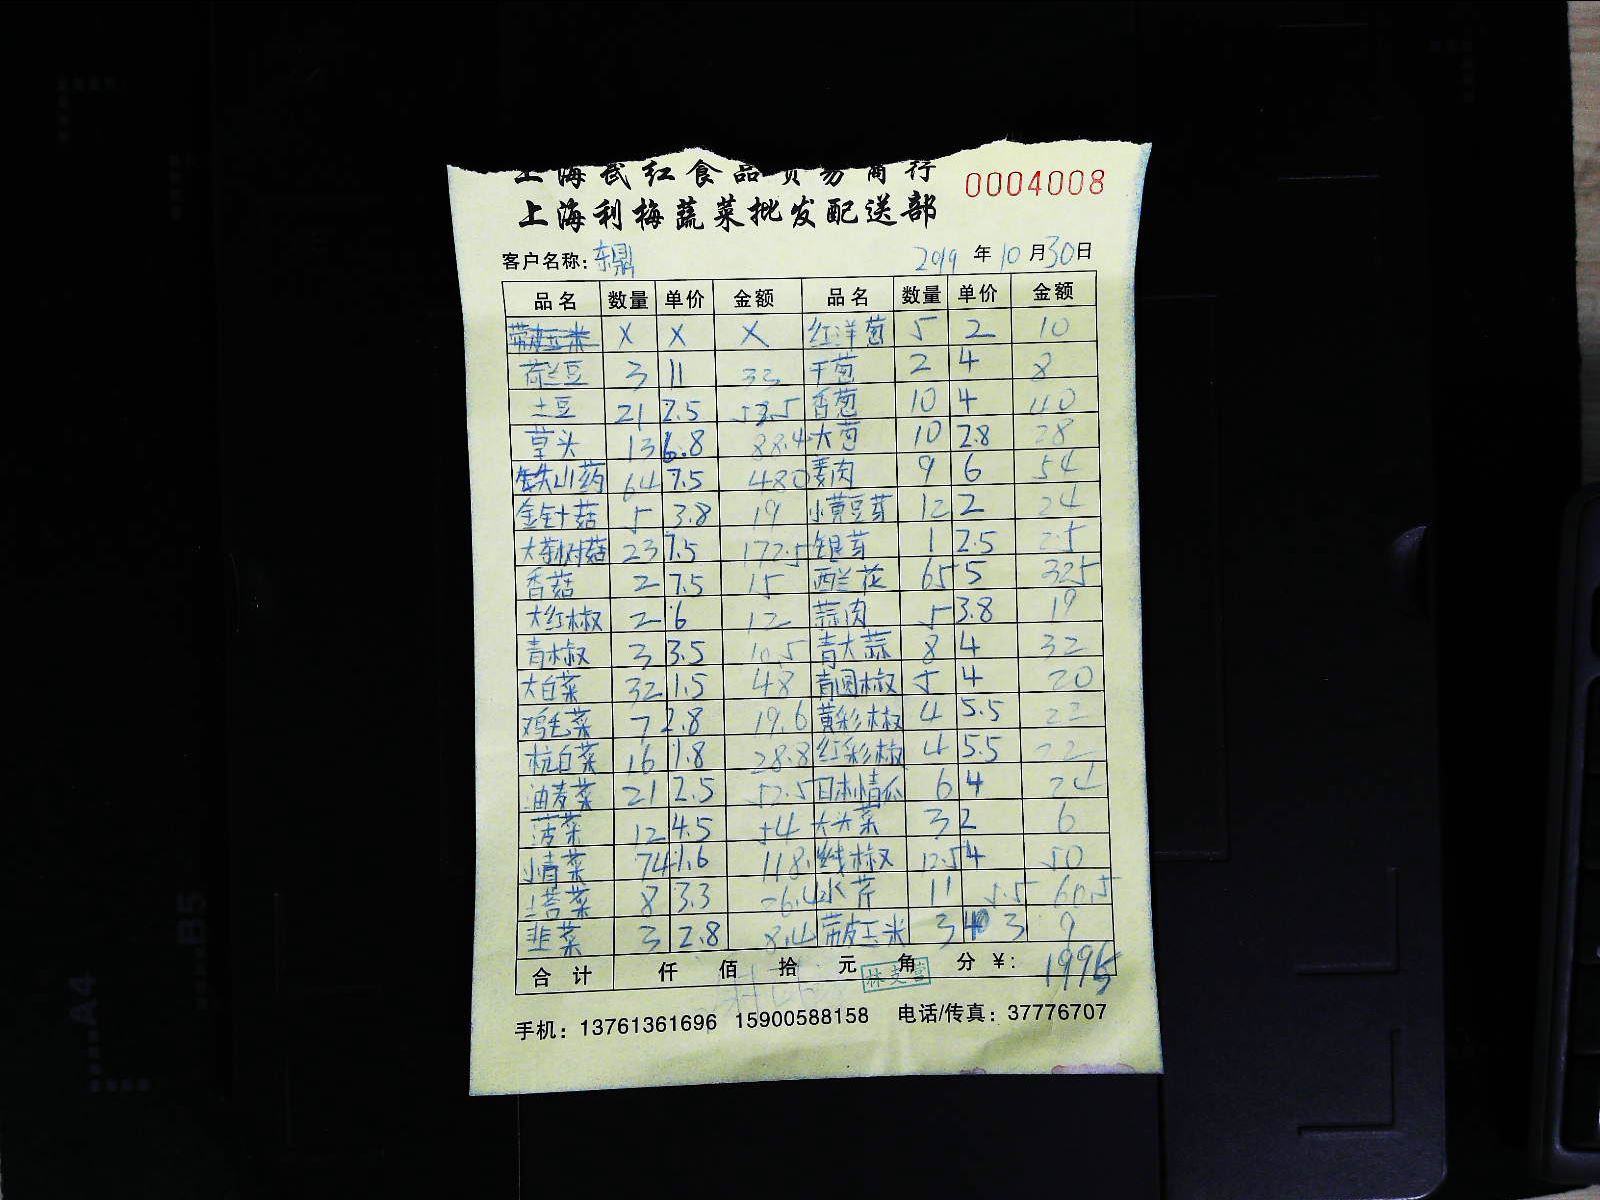 上海武红食品贸易商行
0004008
上海利梅蔬菜批发配送部
客户名称: 东鼎 2019 年 10 月 30 日
品名 数量 单价 金额 品名 数量 单价 金额
带皮玉米 X X X 红洋葱 5 2 10
荷兰豆 3 11 33 干葱 2 4 8
土豆 21 2.5 53.5 香葱 10 4 40
草头 13 6.8 88.4 大葱 10 2.8 28
铁山药 64 7.5 480 姜肉 9 6 54
金针菇 5 3.8 19 小黄豆芽 12 2 24
23 7.5 172.5 银芽 1 2.5 2.5
香菇 2 7.5 15 西兰花 65 5 325
大红椒 2 6 12 蒜肉 5 3.8 19
青椒 3 3.5 10.5 青大蒜 8 4 32
大白菜 32 1.5 48 青圆椒 5 4 20
鸡毛菜 7 2.8 19.6 黄彩椒 4 5.5 22
杭白菜 16 1.8 28.8 红彩椒 4 5.5 22
油麦菜 21 2.5 52.5 日本青瓜 6 4 24
菠菜 12 4.5 54 大头菜 3 2 6
小青菜 74 1.6 118. 线椒 12.5 4 50
塔菜 8 3.3 26.4 水芹 11 5.5 60.5
韭菜 3 2.8 8.4 带皮玉米 3 3 9
合计 仟 佰 拾 元 角 分 ¥: 1995
手机: 13761361696 15900588158 电话/传真: 37776707